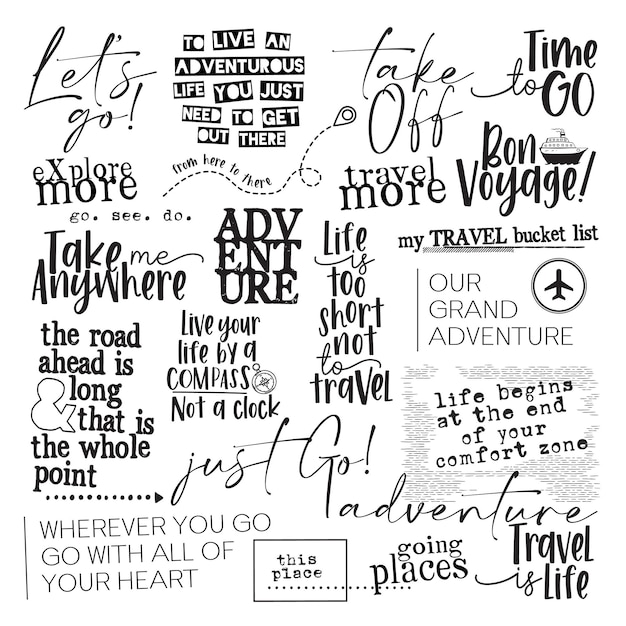 Let's
go!
TO LIVE AN
ADVENTUROUS
LIFE YOU JUST
NEED TO GET
OUT THERE
take
Off
Time
to GO
eXplore
more
from here to there
travel
more
Bon
Voyage!
go. see. do.
Take me
Anywhere
ADV
ENT
URE
Life
is
too
short
not
to
traVeL
my TRAVEL bucket list
OUR
GRAND
ADVENTURE
the road
ahead is
long
& that is
the whole
point
Live your
life by a
COMPASS
Not a clock
life begins
at the end
of your
comfort zone
just Go!
adventure
WHEREVER YOU GO
GO WITH ALL OF
YOUR HEART
this
place
going
places
Travel
is Life